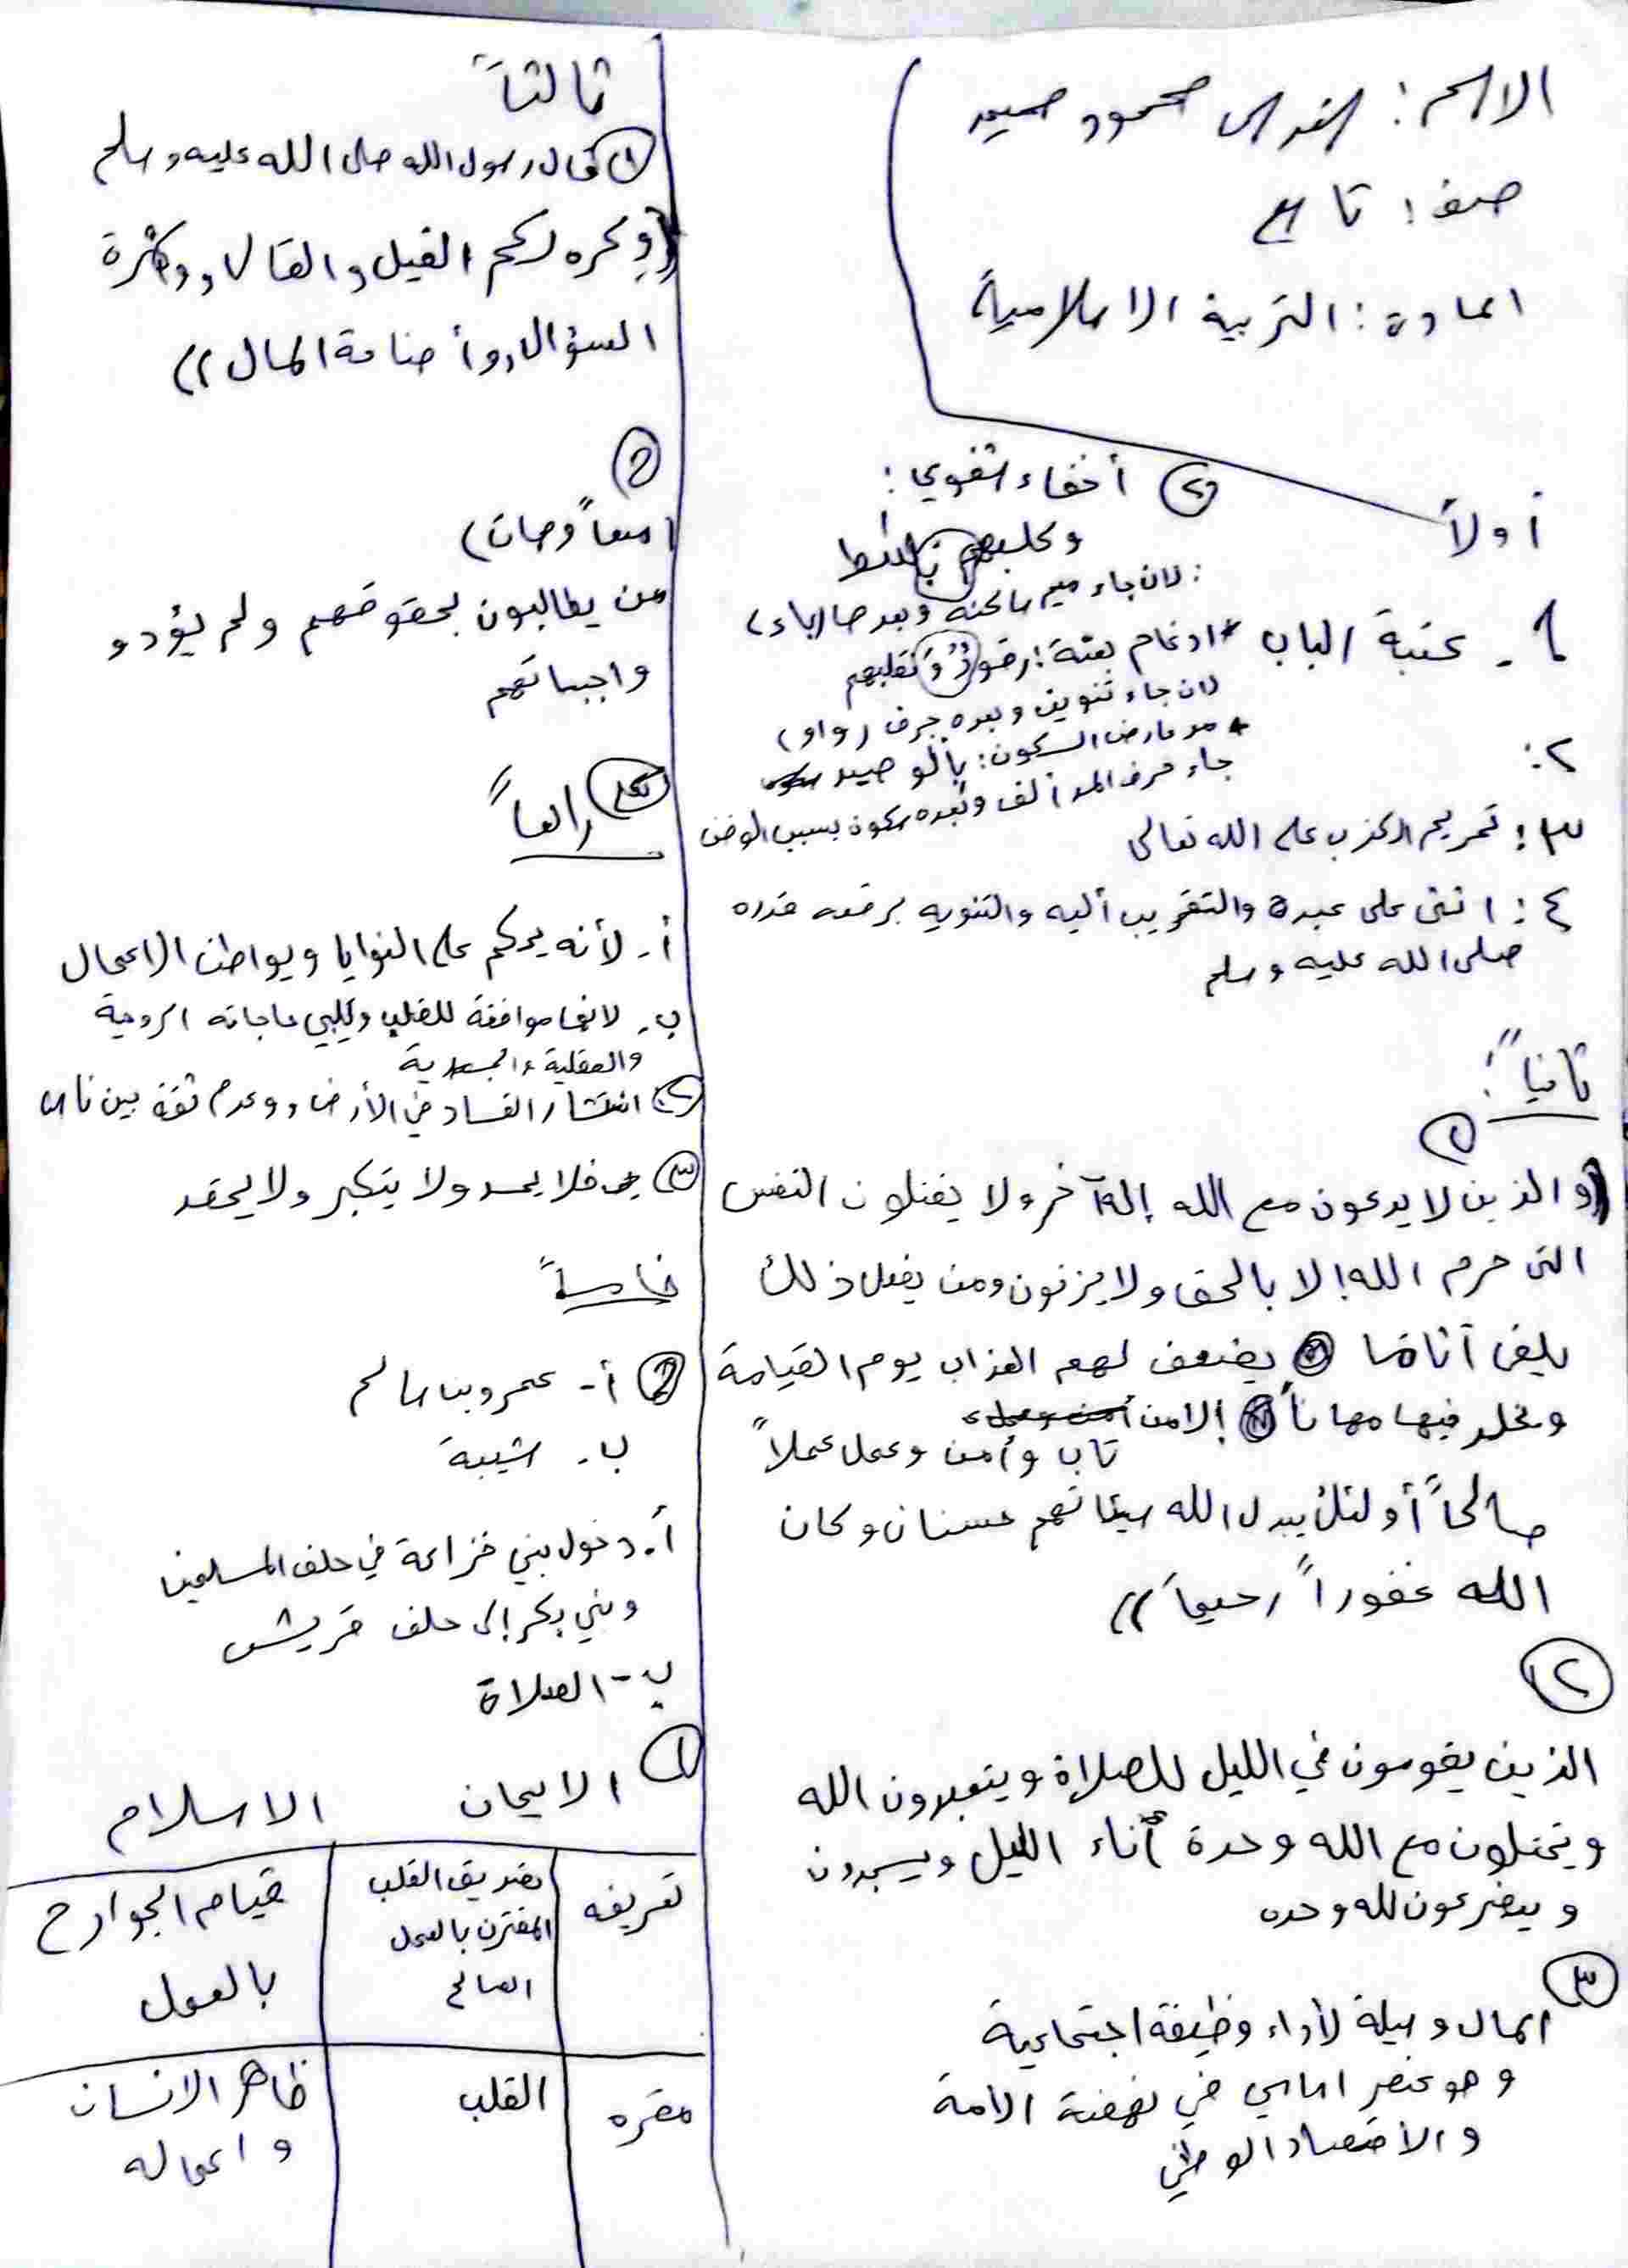 الاسم: محمود
صف: تاسع
المادة: التربية الاسلامية
أولاً
١- عتبة الباب
٢:
② أخفاء شفوي:
وكلبهم باسط
: لان جاء ميم ساكنة وبعدها (باء)
* ادغام بغنة: رقودٌ وَنقلبهم
لان جاء تنوين وبعده حرف (واو)
* مد عارض السكون: بالوصيد
جاء حرف المد ألف وبعده سكون بسبب الوقف
٣: تحريم الكذب على الله تعالى
٤: اثنى على عبدة والتقريب أليه والتنويه برفعه قدره
صلى الله عليه وسلم
ثانياً:
①
((و الذين لا يدعون مع الله إلهاً آخر ولا يقتلون النفس
التي حرم الله إلا بالحق ولا يزنون ومن يفعل ذلك
يلقى آثاما يضعف لهم العذاب يوم القيامة
ويخلد فيها مهاناً إلا من
تاب وأمن وعمل عملاً
صالحاً أولئك يبدل الله سيئاتهم حسنات وكان
الله غفوراً رحيماً))
②
الذين يقومون في الليل للصلاة ويتعبدون الله
ويختلون مع الله وحدة أناء الليل ويسجدون
و يتضرعون لله وحده
③
المال وسيلة لأداء وظيفة اجتماعية
وهو عنصر اساسي في نهضة الامة
و الاقتصاد الوطني
ثالثاً
① قال رسول الله صلى الله عليه وسلم
((ويكره لكم القيل والقال، وكثرة
السؤال، وأضاعة المال))
②
(منعاً وهات)
من يطالبون بحقوقهم ولم يؤدو
واجباتهم
رابعاً
أ- لأنه يحكم على النوايا وبواطن الاعمال
ب- لانها موافقة للقلب ويلبي حاجاته الروحية
والعقلية والجسدية
② انتشار الفساد في الأرض، وعدم ثقة بين ناس
③ فلا يحسد ولا يتكبر ولا يحقد
خامساً
② أ- عمرو بن سالم
ب- شيبة
أ- دخول بني خزاعة في حلف المسلمين
وبني بكر إلى حلف قريش
ب- الصلاة
① الايمان الاسلام
تعريفه تصديق القلب المقترن بالعمل الصالح قيام الجوارح بالعمل
مقره القلب ظاهر الانسان واعماله